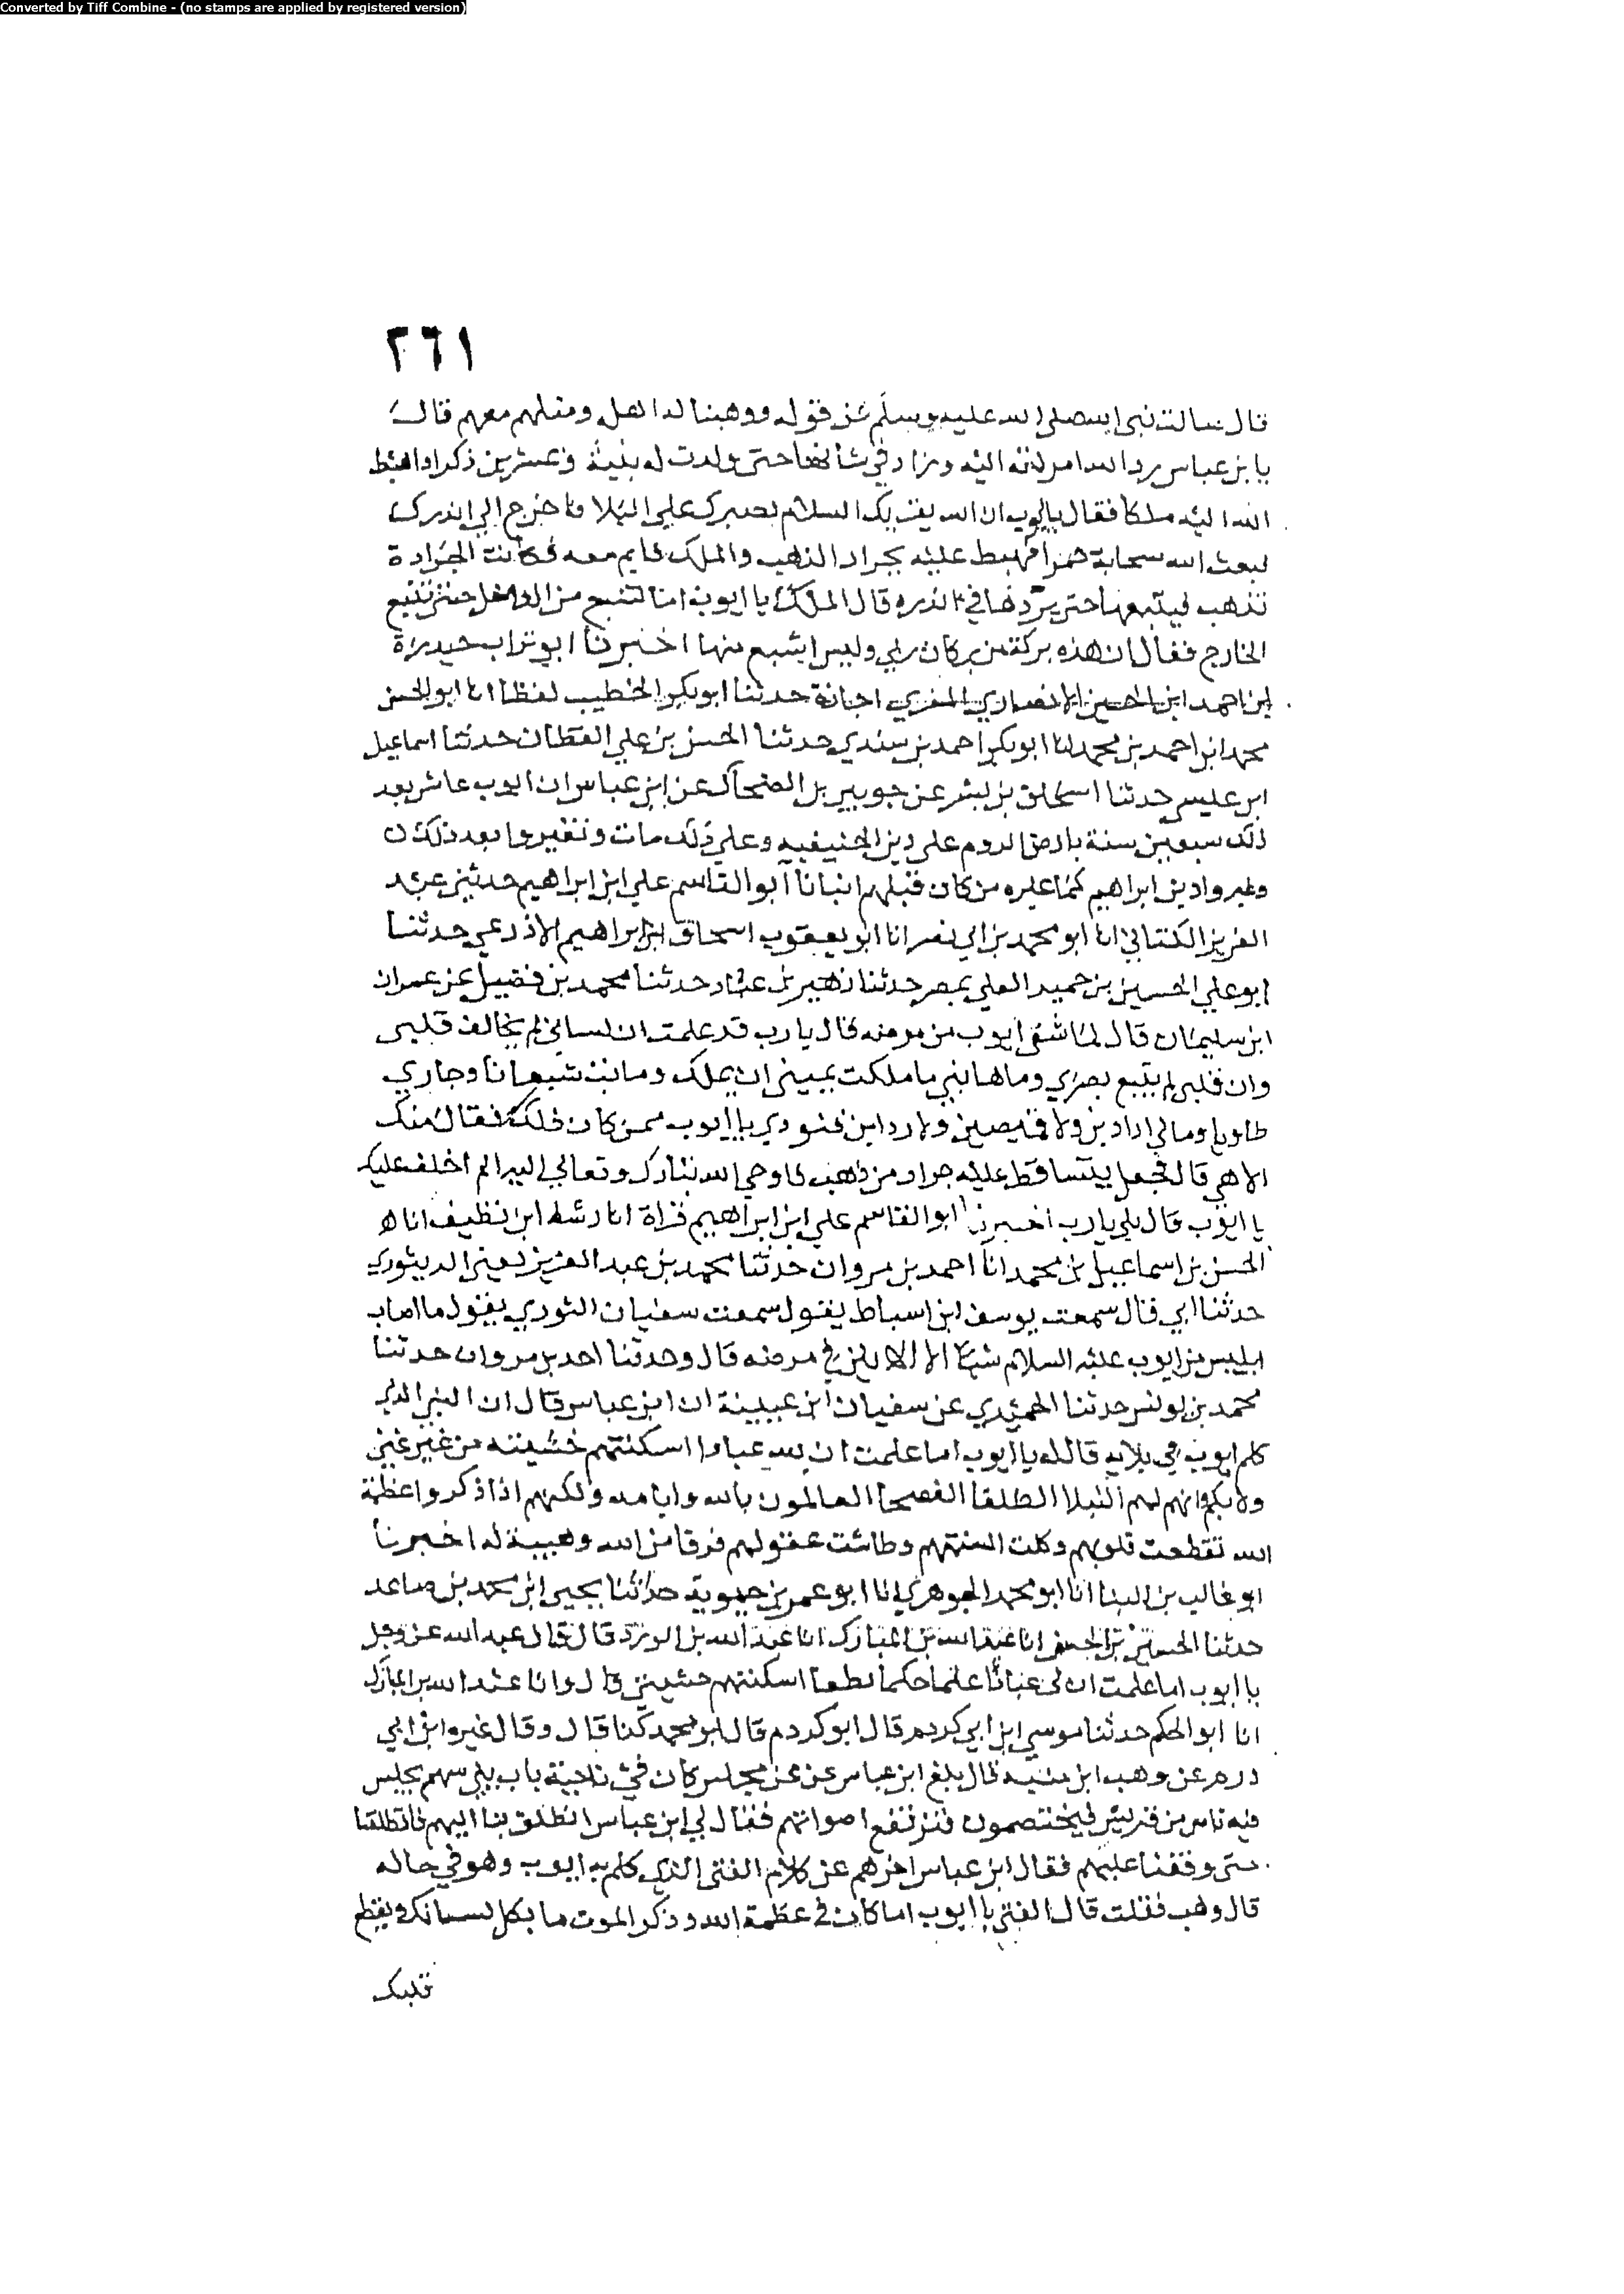 Converted by Tiff Combine - (no stamps are applied by registered version)
٢٦١
قال سالت نبي الله صلي الله عليه وسلم عن قوله ووهبنا له اهله ومثلهم معهم قال
يا بن عباس رد الله امراته اليه وزاد في شأنها حتى ولدت له ستة وعشرين ذكرا واهبط
الله اليه ملكا فقال يا ايوب ان الله يقريك السلام بصبرك علي البلا فاخرج الي اندرك
فبعث الله سحابة حمرا فهبط عليه بجراد الذهب والملك قايم معه فكانت الجرادة
تذهب فيتبعها حتى يردها في اندره قال الملك يا ايوب اما تشبع من الداخل حتى تتبع
الخارج فقال ان هذه بركة من بركات ربي وليس اشبع منها اخبرنا ابو تراب حيدرة
ابن احمد ابن الحسين الانصاري المقري اجازة حدثنا ابو بكر الخطيب لفظا انا ابو الحسن
محمد ابن احمد بن محمد انا ابو بكر احمد بن سندي حدثنا الحسن بن علي القطان حدثنا اسماعيل
ابن عيسى حدثنا اسحاق بن بشر عن جويبر بن الضحاك عن ابن عباس ان ايوب عاش بعد
ذلك سبعين سنة بارض الروم علي دين الحنيفيه وعلي ذلك مات وتغيروا بعد ذلك
وغيروا دين ابراهيم كما غيره من كان قبلهم انبانا ابو القاسم علي ابن ابراهيم حدثني عبد
العزيز الكتاني انا ابو محمد بن ابي نصر انا ابو يعقوب اسحاق ابن ابراهيم الاذرعي حدثنا
ابو علي الحسين بن حميد العلي بمصر حدثنا زهير بن عباد حدثنا محمد بن فضيل عن عمران
ابن سليمان قال لما شفي ايوب من مرضه قال يا رب قد علمت ان لساني لم يخالف قلبي
وان قلبي لم يتبع بصري وما هابني ما ملكت يميني ان يملك وما بت شبعانا وجاري
طاويا ومالي ولا قميصين ولا ردا اين فنودي يا ايوب ممن كان ذلك فقال منك
الاهي قال فجعل يتساقط عليه جراد من ذهب فاوحي الله تبارك وتعالي اليه الم اخلف عليك
يا ايوب قال بلي يا رب اخبرنا ابو القاسم علي ابن ابراهيم قراة انا رشا ابن نظيف انا ه
الحسن بن اسماعيل بن محمد انا احمد بن مروان حدثنا محمد بن عبد العزيز يعني الدينوري
حدثنا ابي قال سمعت يوسف ابن اسباط يقول سمعت سفيان الثوري يقول ما اصاب
ابليس من ايوب عليه السلام شيا الا الانين في مرضه قال وحدثنا احمد بن مروان حدثنا
محمد بن يونس حدثنا الحميدي عن سفيان ابن عيينة ان ابن عباس قال ان النبي الذي
كلم ايوب في بلايه قال له يا ايوب اما علمت ان لله عبادا اسكنتهم خشيته من غير عي
ولا بكم وانهم لهم النبلا الطلقا الفصحا العالمون بالله وايامه ولكنهم اذا ذكروا عظمة
الله تقطعت قلوبهم وكلت السنتهم وطاشت عقولهم فرقا من الله وهيبة له اخبرنا
ابو غالب بن البنا انا ابو محمد الجوهري انا ابو عمر بن حيوية حدثنا يحيى ابن محمد بن صاعد
حدثنا الحسين بن الحسن انا عبد الله بن المبارك انا عبد الله بن الورد قال قال عبد الله عز وجل
يا ايوب اما علمت ان لي عبادا علما حكما اسكنتهم خشيتي قال وانا عبد الله بن المبارك
انا ابو الحكم حدثنا موسي ابن ابي كردم قال ابو كردم قال ابو محمد كنا قال وقال غيره ابن ابي
درم عن وهب ابن منبه قال بلغ ابن عباس عن مجلس كان في ناحية باب بني سهم يجلس
فيه ناس من قريش فيختصمون فترتفع اصواتهم فقال لي ابن عباس انطلق بنا اليهم فانطلقنا
حتى وقفنا عليهم فقال ابن عباس اخبرهم عن كلام الفتى الذي كلم به ايوب وهو في حاله
قال وهب فقلت قال الفتى يا ايوب اما كان في عظمة الله وذكر الموت ما يكل لسانك ويقطع
قلبك